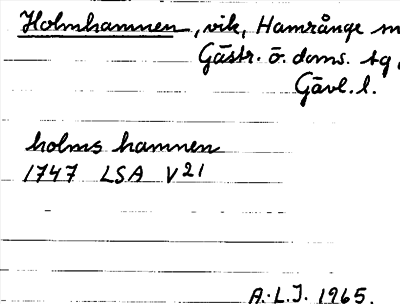 Holmhamnen, vik, Hamrånge
Gästr. ö. doms. tg
Gävl. l.
holms hamnen
1747 LSA V21
A.L.J. 1965.